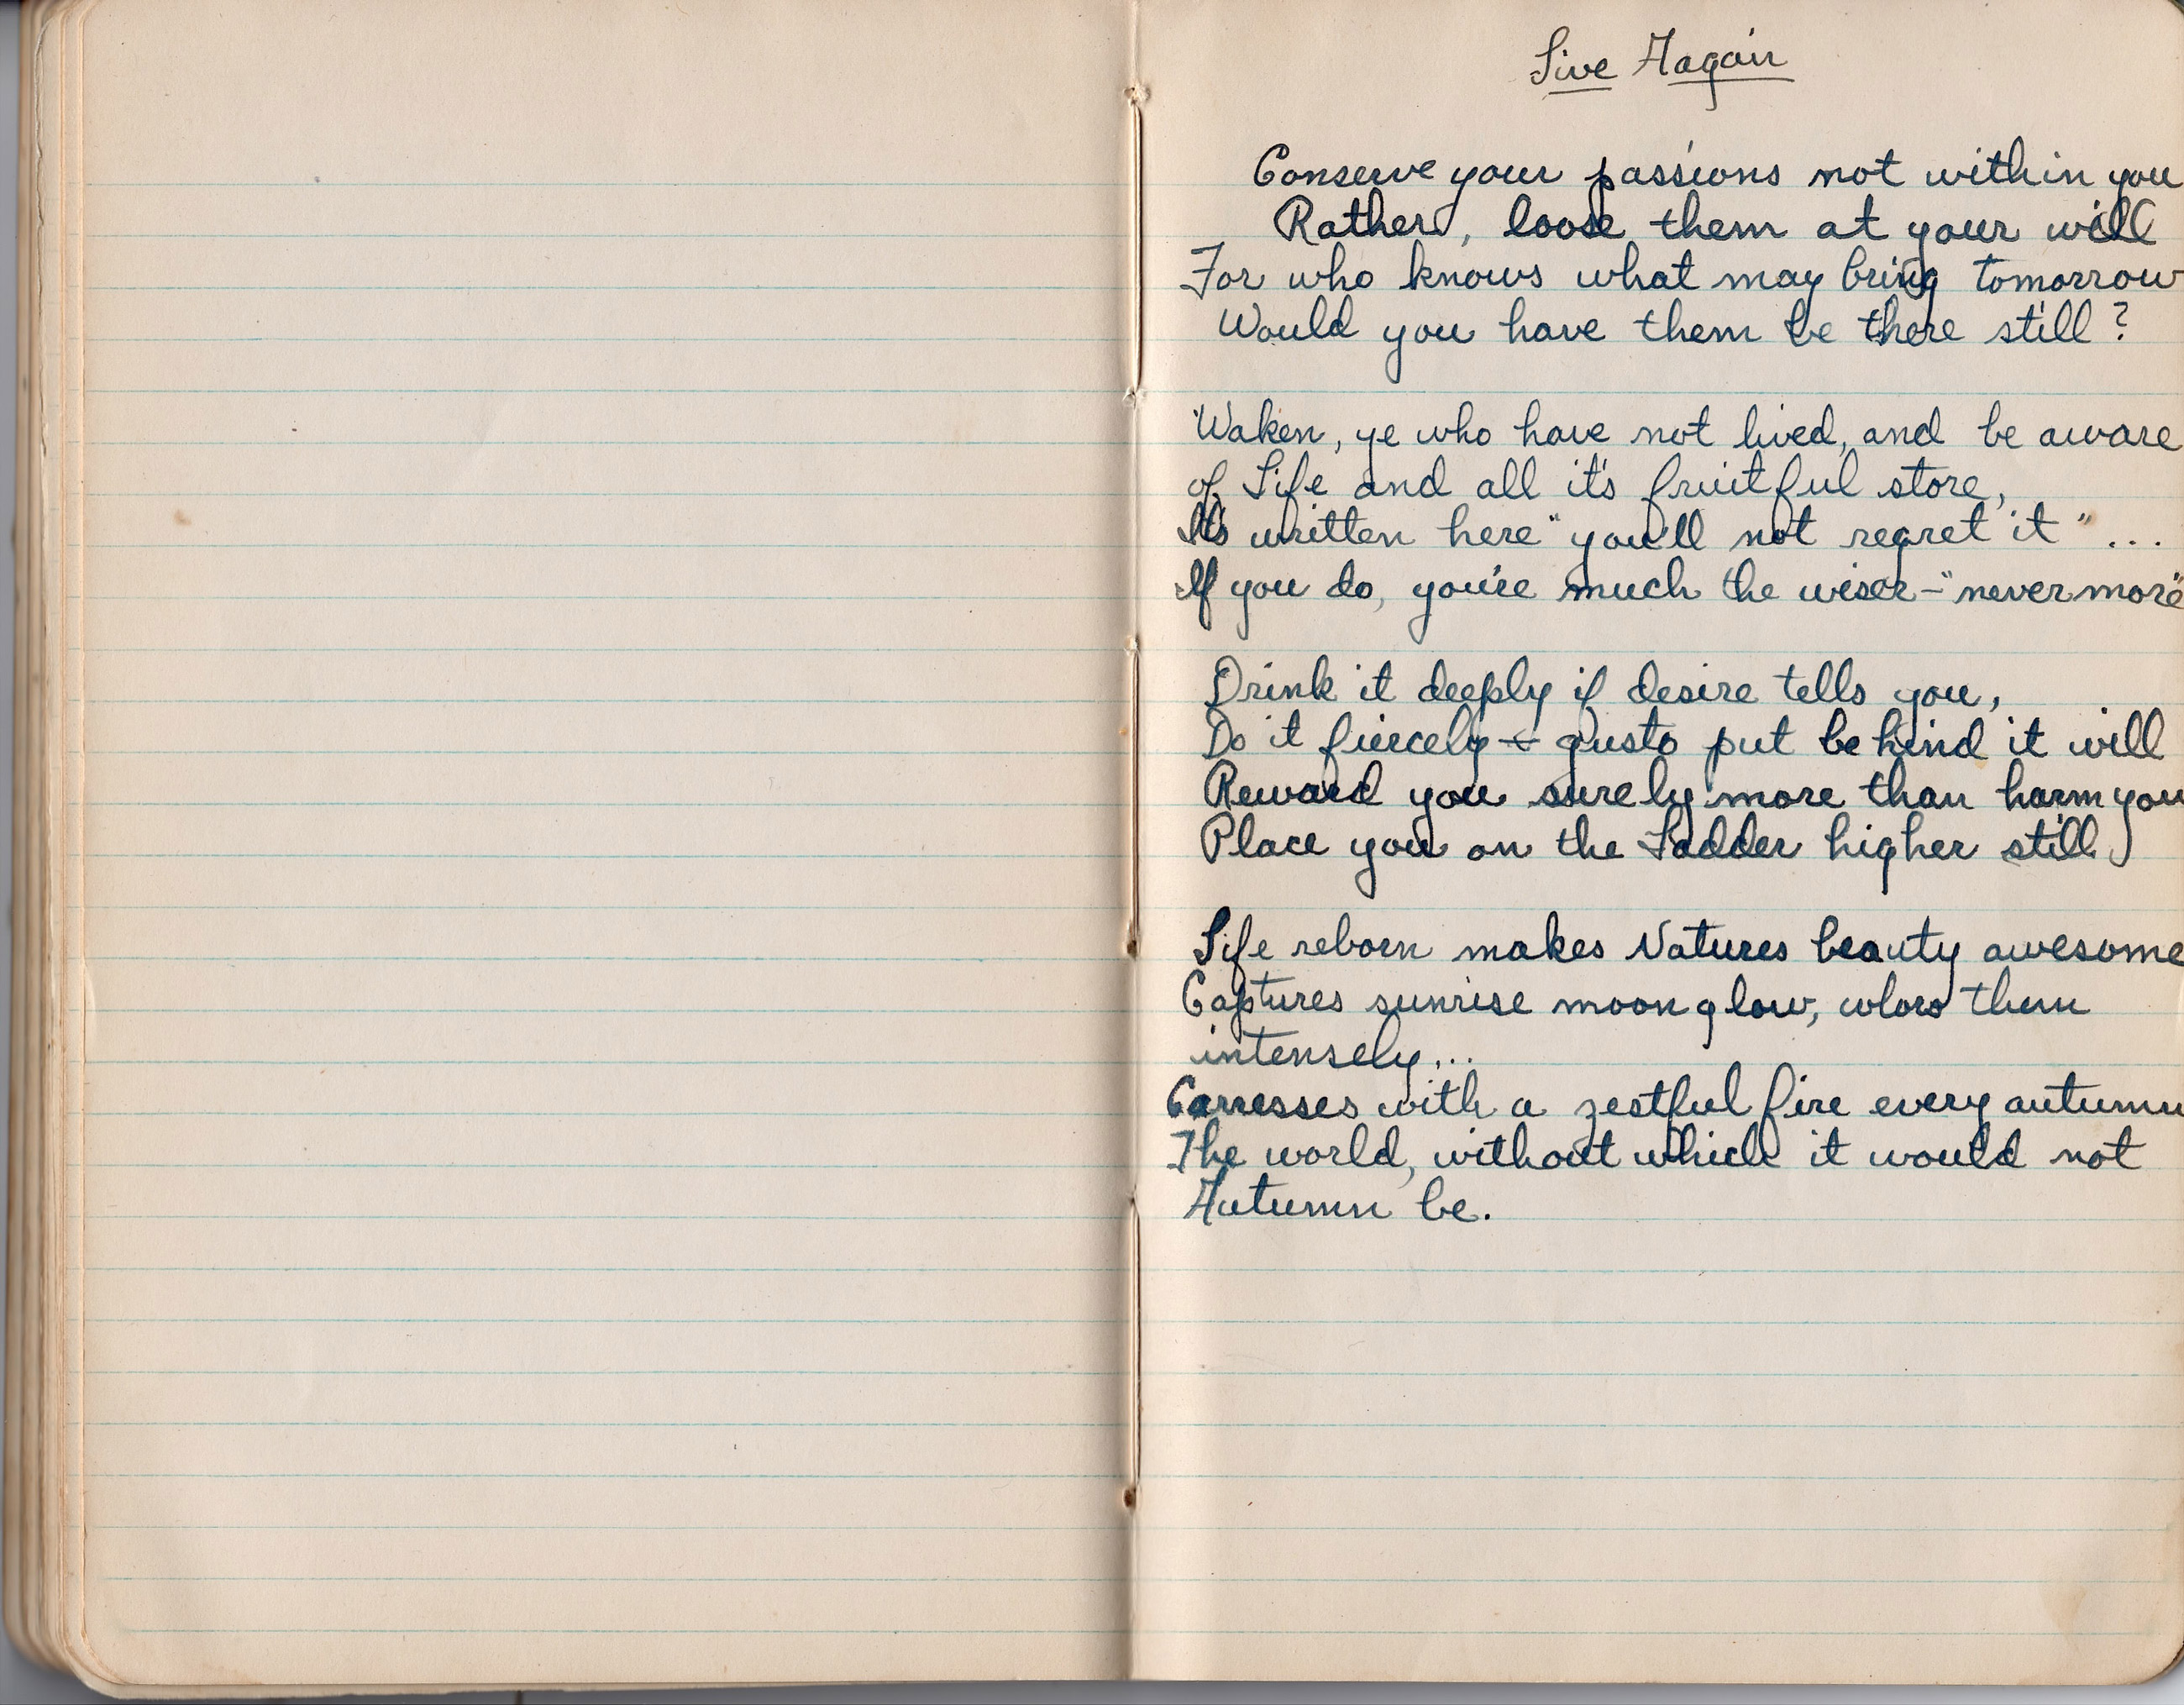 Live Again
Conserve your passions not within you
Rather, loose them at your will
For who knows what may bring tomorrow
Would you have them be there still?
Waken, ye who have not lived, and be aware
of Life and all it's fruitful store,
It's written here "you'll not regret it"...
If you do, you're much the wiser - "nevermore"
Drink it deeply if desire tells you,
Do it fiercely & gusto put behind it will
Reward you surely more than harm you
Place you on the Ladder higher still.
Life reborn makes Natures beauty awesome
Captures sunrise moonglow, colors them
intensely...
Carresses with a zestful fire every autumn
The world, without which it would not
Autumn be.